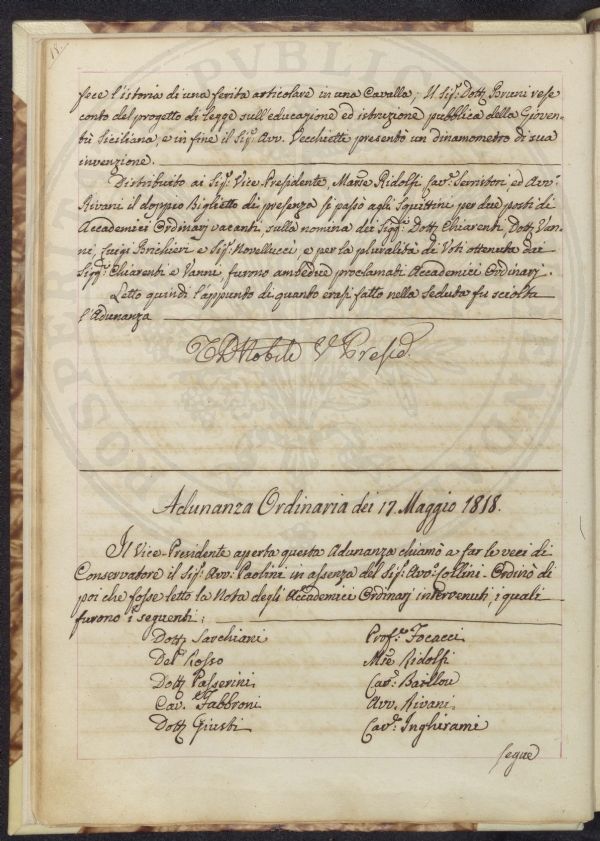 18.
fece l'istoria di una ferita articolare in una Cavalla; Il Sig.r Dott. Bruni rese
conto del progetto di legge sull'educazione ed istruzione pubblica della Gioven-
tù Siciliana, e in fine il Sig.r Avv. Vecchietti presentò un dinamometro di sua
invenzione.
Distribuito ai Sig.i Vice-Presidente, Marse Ridolfi, Cav.r Serristori, ed Avv.o
Rivani il doppio Biglietto di presenza si passò agli Squittini per due posti di
Accademici Ordinarj vacanti, sulla nomina dei Sigg.i Dott. Chiarenti, Dott. Van-
ni, Luigi Brichieri e Sig.r Novellucci, e per la pluralità di Voti ottenuta dai
Sigg.i Chiarenti e Vanni furono ambedue proclamati Accademici Ordinarj.
Letto quindi l'appunto di quanto erasi fatto nella Seduta fu sciolta
l'Adunanza
Nobili V. Presid.
Adunanza Ordinaria dei 17. Maggio 1818.
Il Vice-Presidente aperta questa Adunanza chiamò a far le veci di
Conservatore il Sig.r Avv.o Paolini in assenza del Sig.r Avv.o Collini. Ordinò di
poi che fosse letto la Nota degli Accademici Ordinarj intervenuti, i quali
furono i seguenti:
Dott. Sarchiani Prof.re Focacci
Del Rosso Mse Ridolfi
Dott. Passerini Cav.r Baillou
Cav. Fabbroni Avv. Rivani
Dott. Giusti Cav.r Inghirami
segue